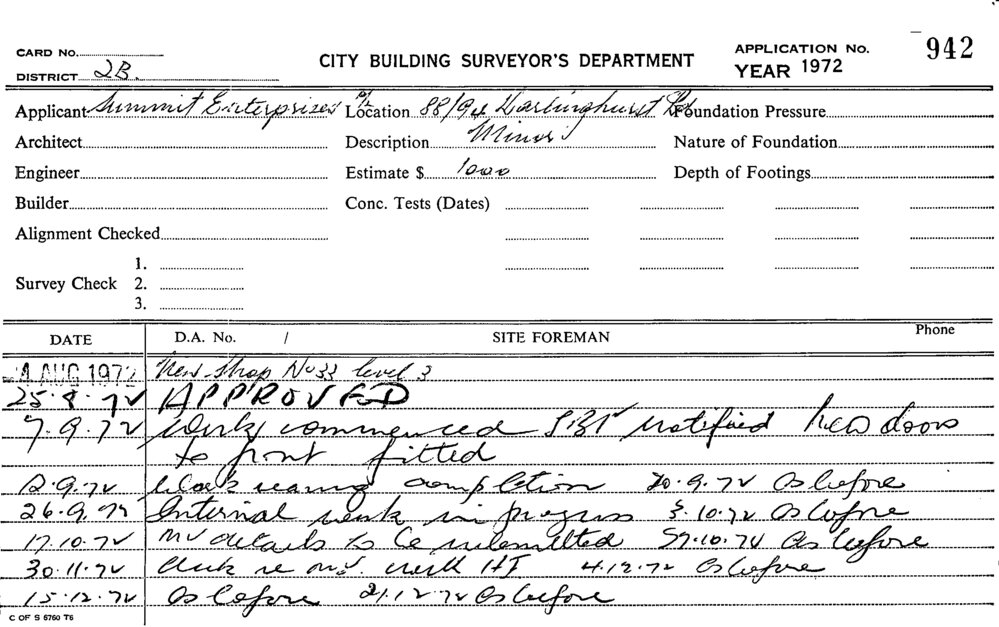 CARD No.
DISTRICT 2B.
CITY BUILDING SURVEYOR'S DEPARTMENT
APPLICATION No. 942
YEAR 1972
Applicant Summit Enterprises P/L Location 88/94 Darlinghurst Rd Foundation Pressure
Architect Description Minor Nature of Foundation
Engineer Estimate $ 1000 Depth of Footings
Builder Conc. Tests (Dates)
Alignment Checked
Survey Check 1.
2.
3.
DATE D.A. No. / SITE FOREMAN Phone
4 AUG 1972 New Shop No 33 level 3
25.8.72 APPROVED
7.9.72 Work commenced notified new doors
to front fitted
12.9.72 Work nearing completion 20.9.72 As before
26.9.72 Internal work in progress 3.10.72 As before
17.10.72 MV details to be submitted 27.10.72 As before
30.11.72 Check re M.V. with HI 4.12.72 As before
15.12.72 As before 21.12.72 As before
C OF S 6760 T6